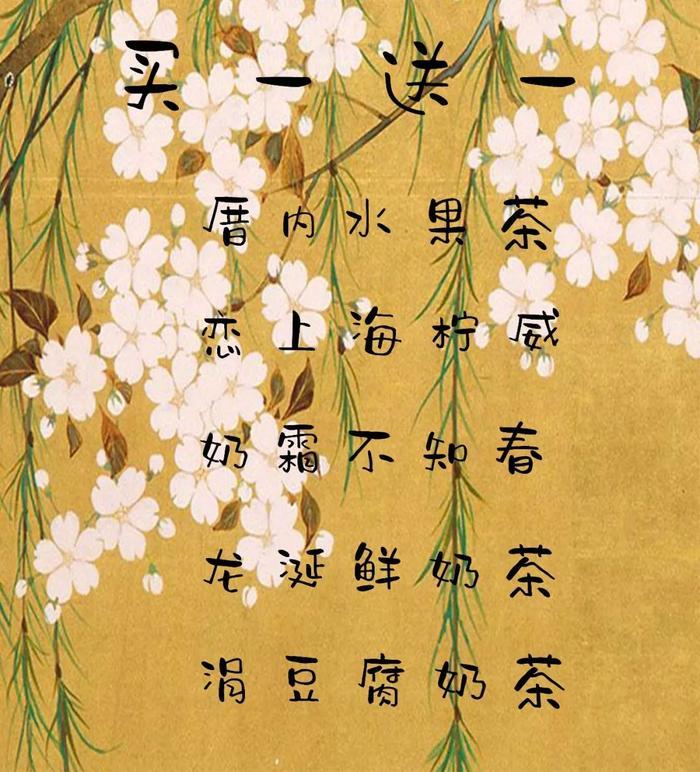 买一送一
厝内水果茶
恋上海柠威
奶霜不知春
龙涎鲜奶茶
涓豆腐奶茶